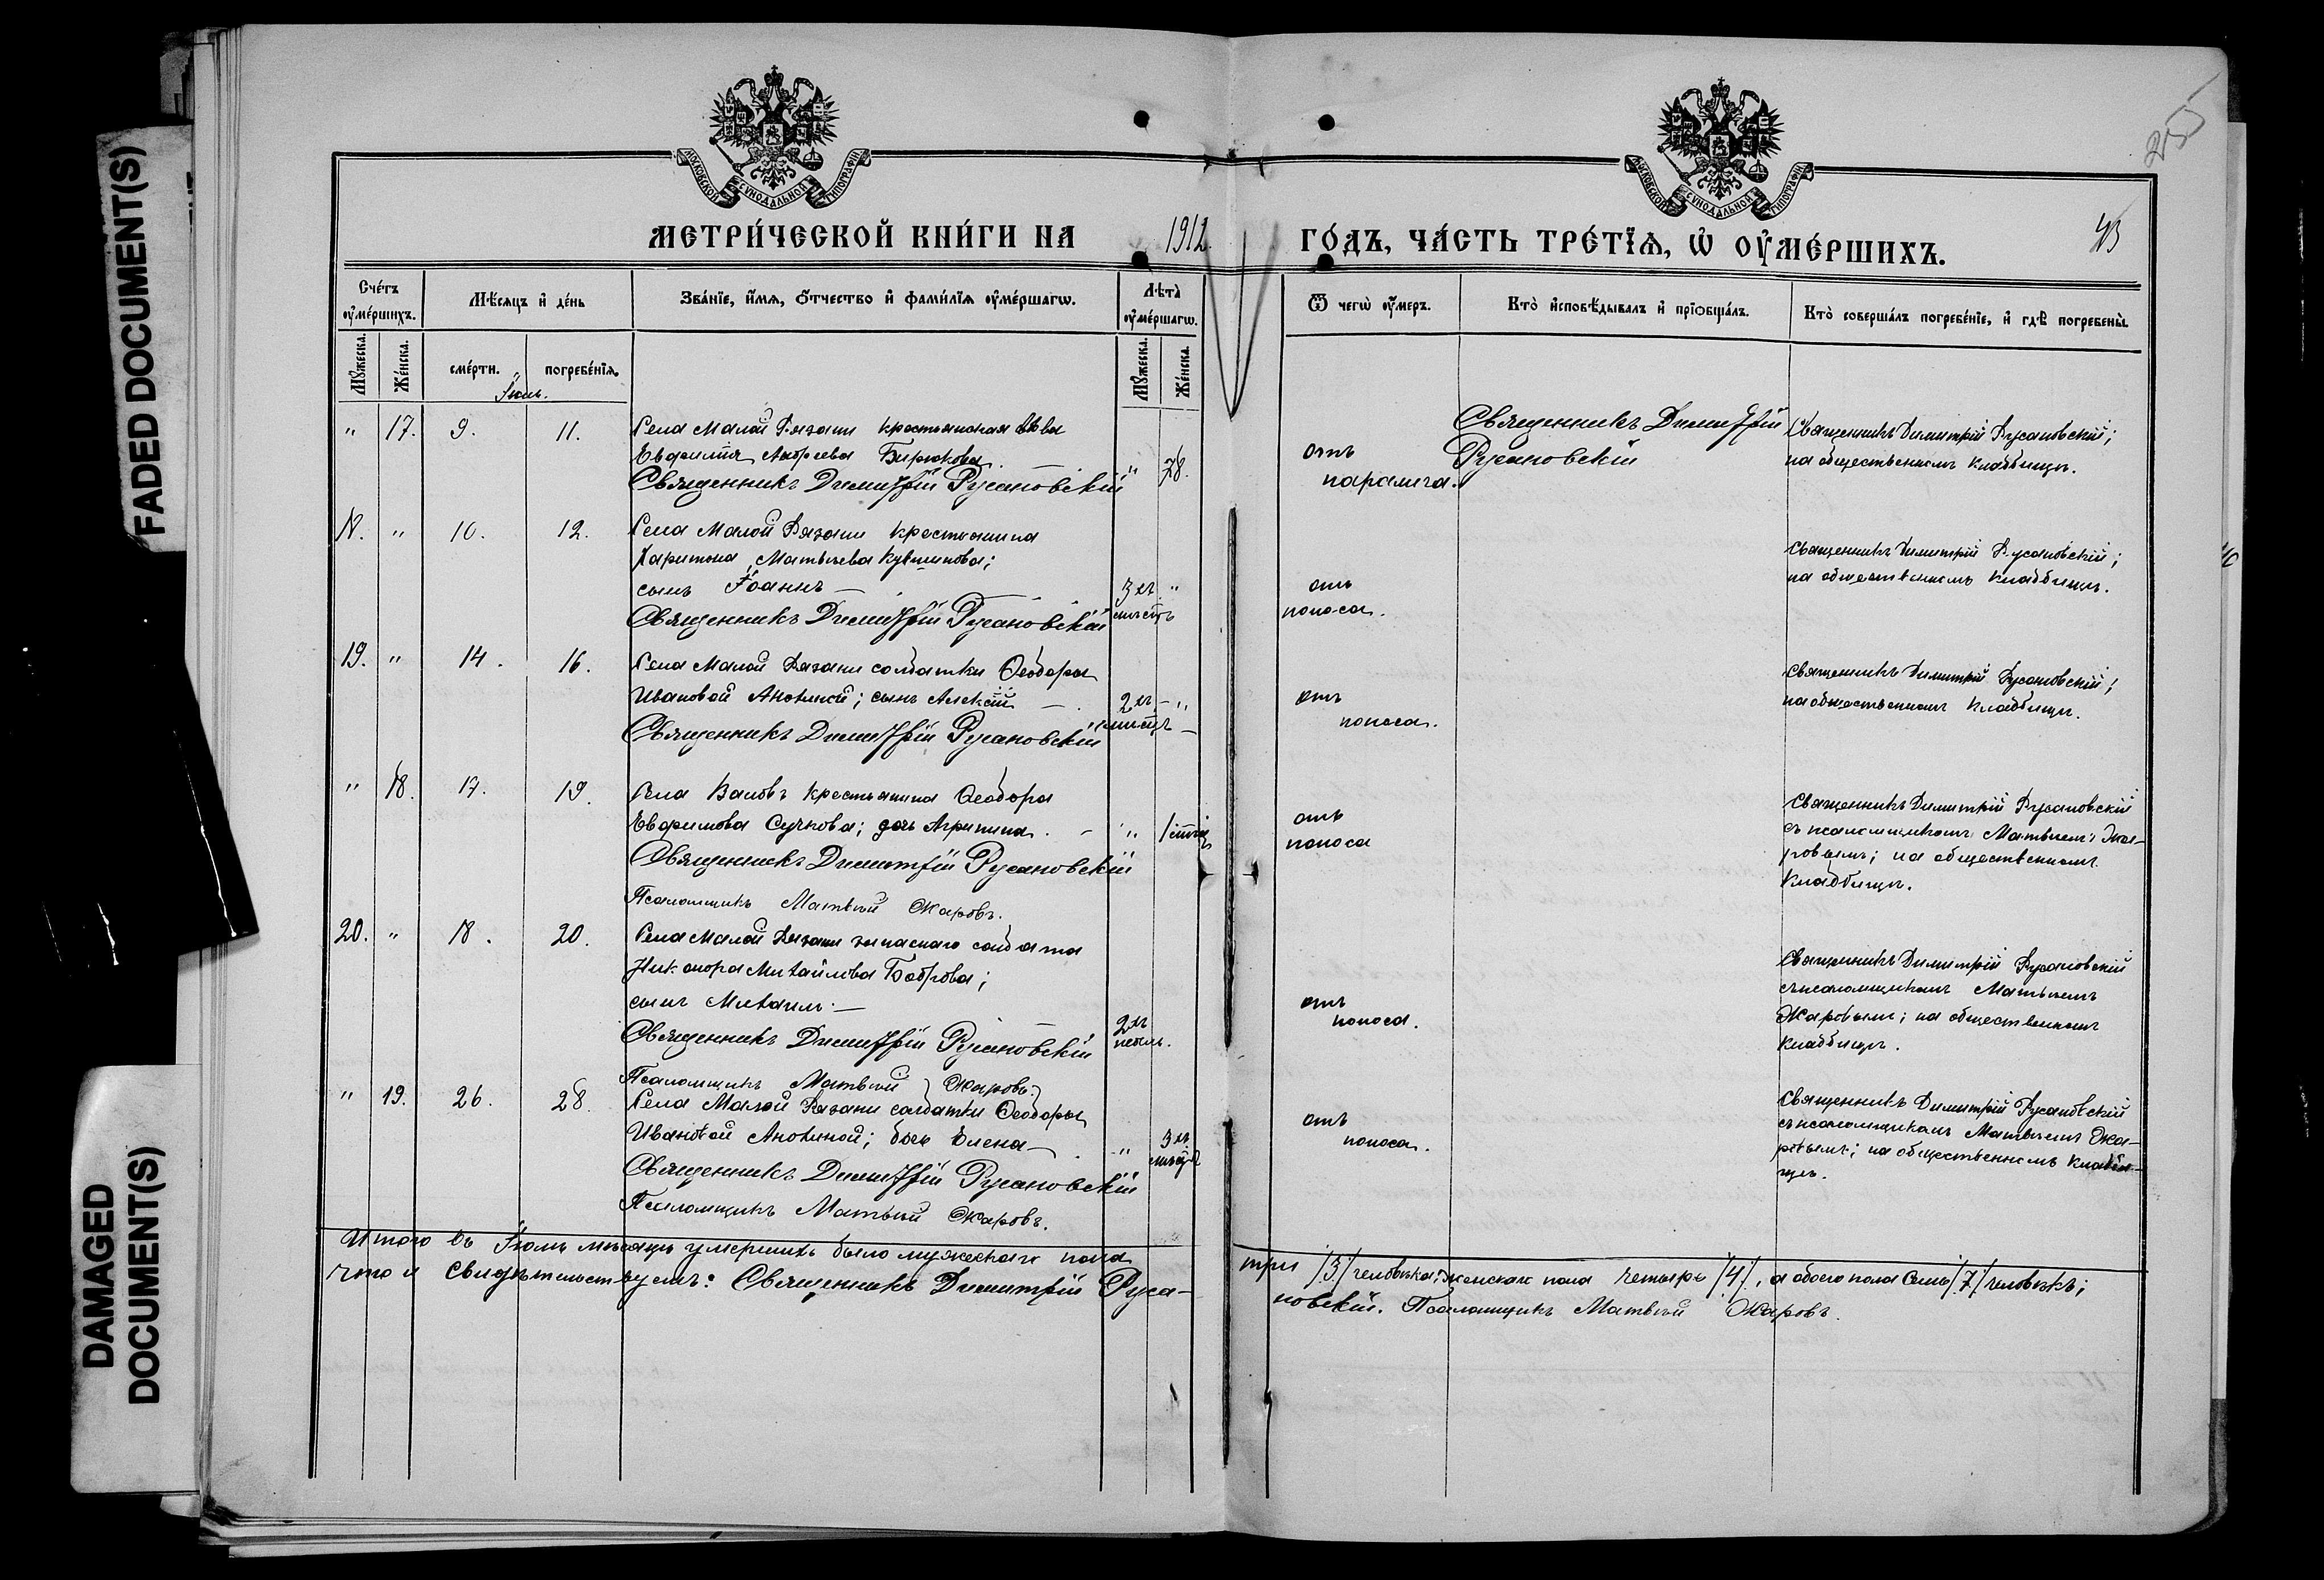 FADED DOCUMENT(S)
DAMAGED
DOCUMENT(S)
МОСКОВСКОЙ СѴНОДАЛЬНОЙ ТИПОГРАФІИ
МОСКОВСКОЙ СѴНОДАЛЬНОЙ ТИПОГРАФІИ
255
МЕТРИ́ЧЕСКОЙ КНИ́ГИ НА 1912. ГО́ДЪ, ЧА́СТЬ ТРЕ́ТЇѦ, Ѡ҆ ОУ҆МЕ́РШИХЪ.
Сче́тъ оу҆ме́ршихъ.
Мѣ́сѧцъ и҆ де́нь
Зва́нїе, и҆́мѧ, ѻ҆́тчество и҆ фами́лїѧ оу҆ме́ршагѡ.
Лѣ̀та оу҆ме́ршагѡ.
Ѿ чегѡ̀ оу҆́меръ.
Кто̀ и҆сповѣ́дывалъ и҆ прїѻбща́лъ.
Кто̀ соверша́лъ погребе́нїе, и҆ гдѣ̀ погребены̀.
Мꙋ́жеска. Же́нска. сме́рти. погребе́нїѧ. Мꙋ́жеска. Же́нска.
Іюль.
" 17. 9. 11. Села Малой Рязани крестьянская вдова
Евфимія Андреева Бирюкова.
Священникъ Димитрій Русановскій " 78.
отъ
паралича.
Священникъ Димитрій
Русановскій
Священникъ Димитрій Русановскій;
на общественномъ кладбищѣ.
18. " 10. 12. Села Малой Рязани крестьянина
Харитона Матвѣева Кувшинова;
сынъ Іоаннъ — 3 хъ "
Священникъ Димитрій Русановскій мѣсяц.
отъ
поноса.
Священникъ Димитрій Русановскій;
на общественномъ кладбищѣ.
19. " 14. 16. Села Малой Рязани солдатки Ѳеодоры
Ивановой Анохиной; сынъ Алексій — 2 хъ — "
Священникъ Димитрій Русановскій
отъ
поноса.
Священникъ Димитрій Русановскій;
на общественномъ кладбищѣ.
" 18. 17. 19. Села Валовъ крестьянина Ѳеодора
Евфимова Сучкова; дочь Агрипина. — "
Священникъ Димитрій Русановскій
Псаломщикъ Матвѣй Жаровъ.
отъ
поноса
Священникъ Димитрій Русановскій
съ псаломщикомъ Матвѣемъ Жа-
ровымъ; на общественномъ
кладбищѣ.
20. " 18. 20. Села Малой Рязани запаснаго солдата
Никанора Михайлова Боброва;
сынъ Михаилъ — 2 хъ
Священникъ Димитрій Русановскій недѣль.
Псаломщикъ Матвѣй Жаровъ.
отъ
поноса.
Священникъ Димитрій Русановскій
съ псаломщикомъ Матвѣемъ
Жаровымъ; на общественномъ
кладбищѣ.
" 19. 26. 28. Села Малой Рязани солдатки Ѳеодоры
Ивановой Анохиной; дочь Елена — " 3 хъ
Священникъ Димитрій Русановскій
Псаломщикъ Матвѣй Жаровъ.
отъ
поноса.
Священникъ Димитрій Русановскій
съ псаломщикомъ Матвѣемъ Жа-
ровымъ; на общественномъ кладби-
щѣ.
Итого въ Іюлѣ мѣсяцѣ умершихъ было мужескаго пола три /3/ человѣка; женскаго пола четыре /4/, а обоего пола семь /7/ человѣкъ;
что и свидѣтельствуемъ: Священникъ Димитрій Руса-
новскій. Псаломщикъ Матвѣй Жаровъ.